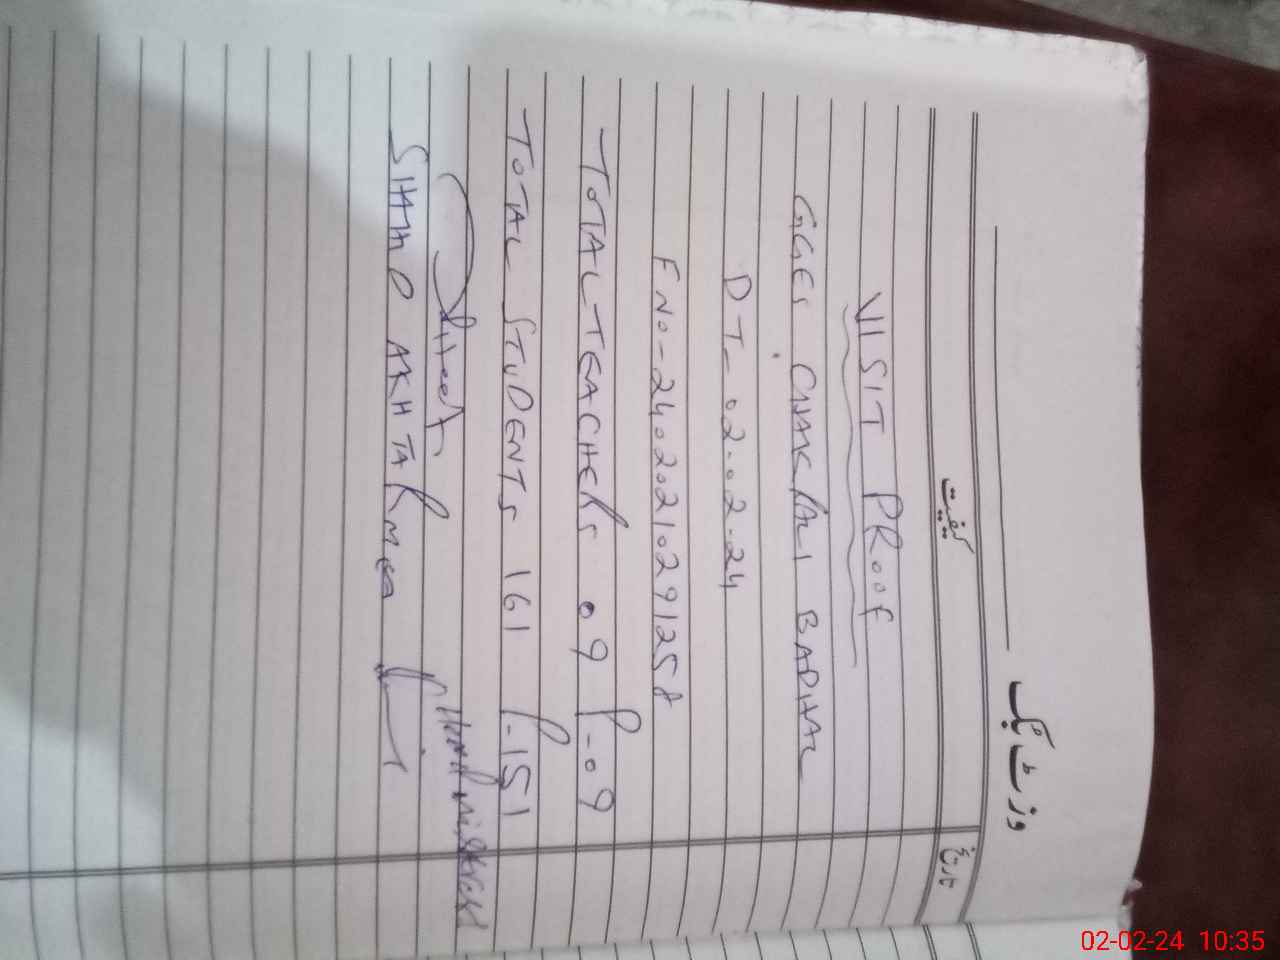 وزٹ بک
تاریخ
کیفیت
VISIT PROOF
GGES CHAKRALI BADHAL
DT- 02-02-24
FNO-24020210291258
TOTAL TEACHERS 09 P-09
TOTAL STUDENTS 161 P-151
SHAMO AKHTAR
02-02-24 10:35